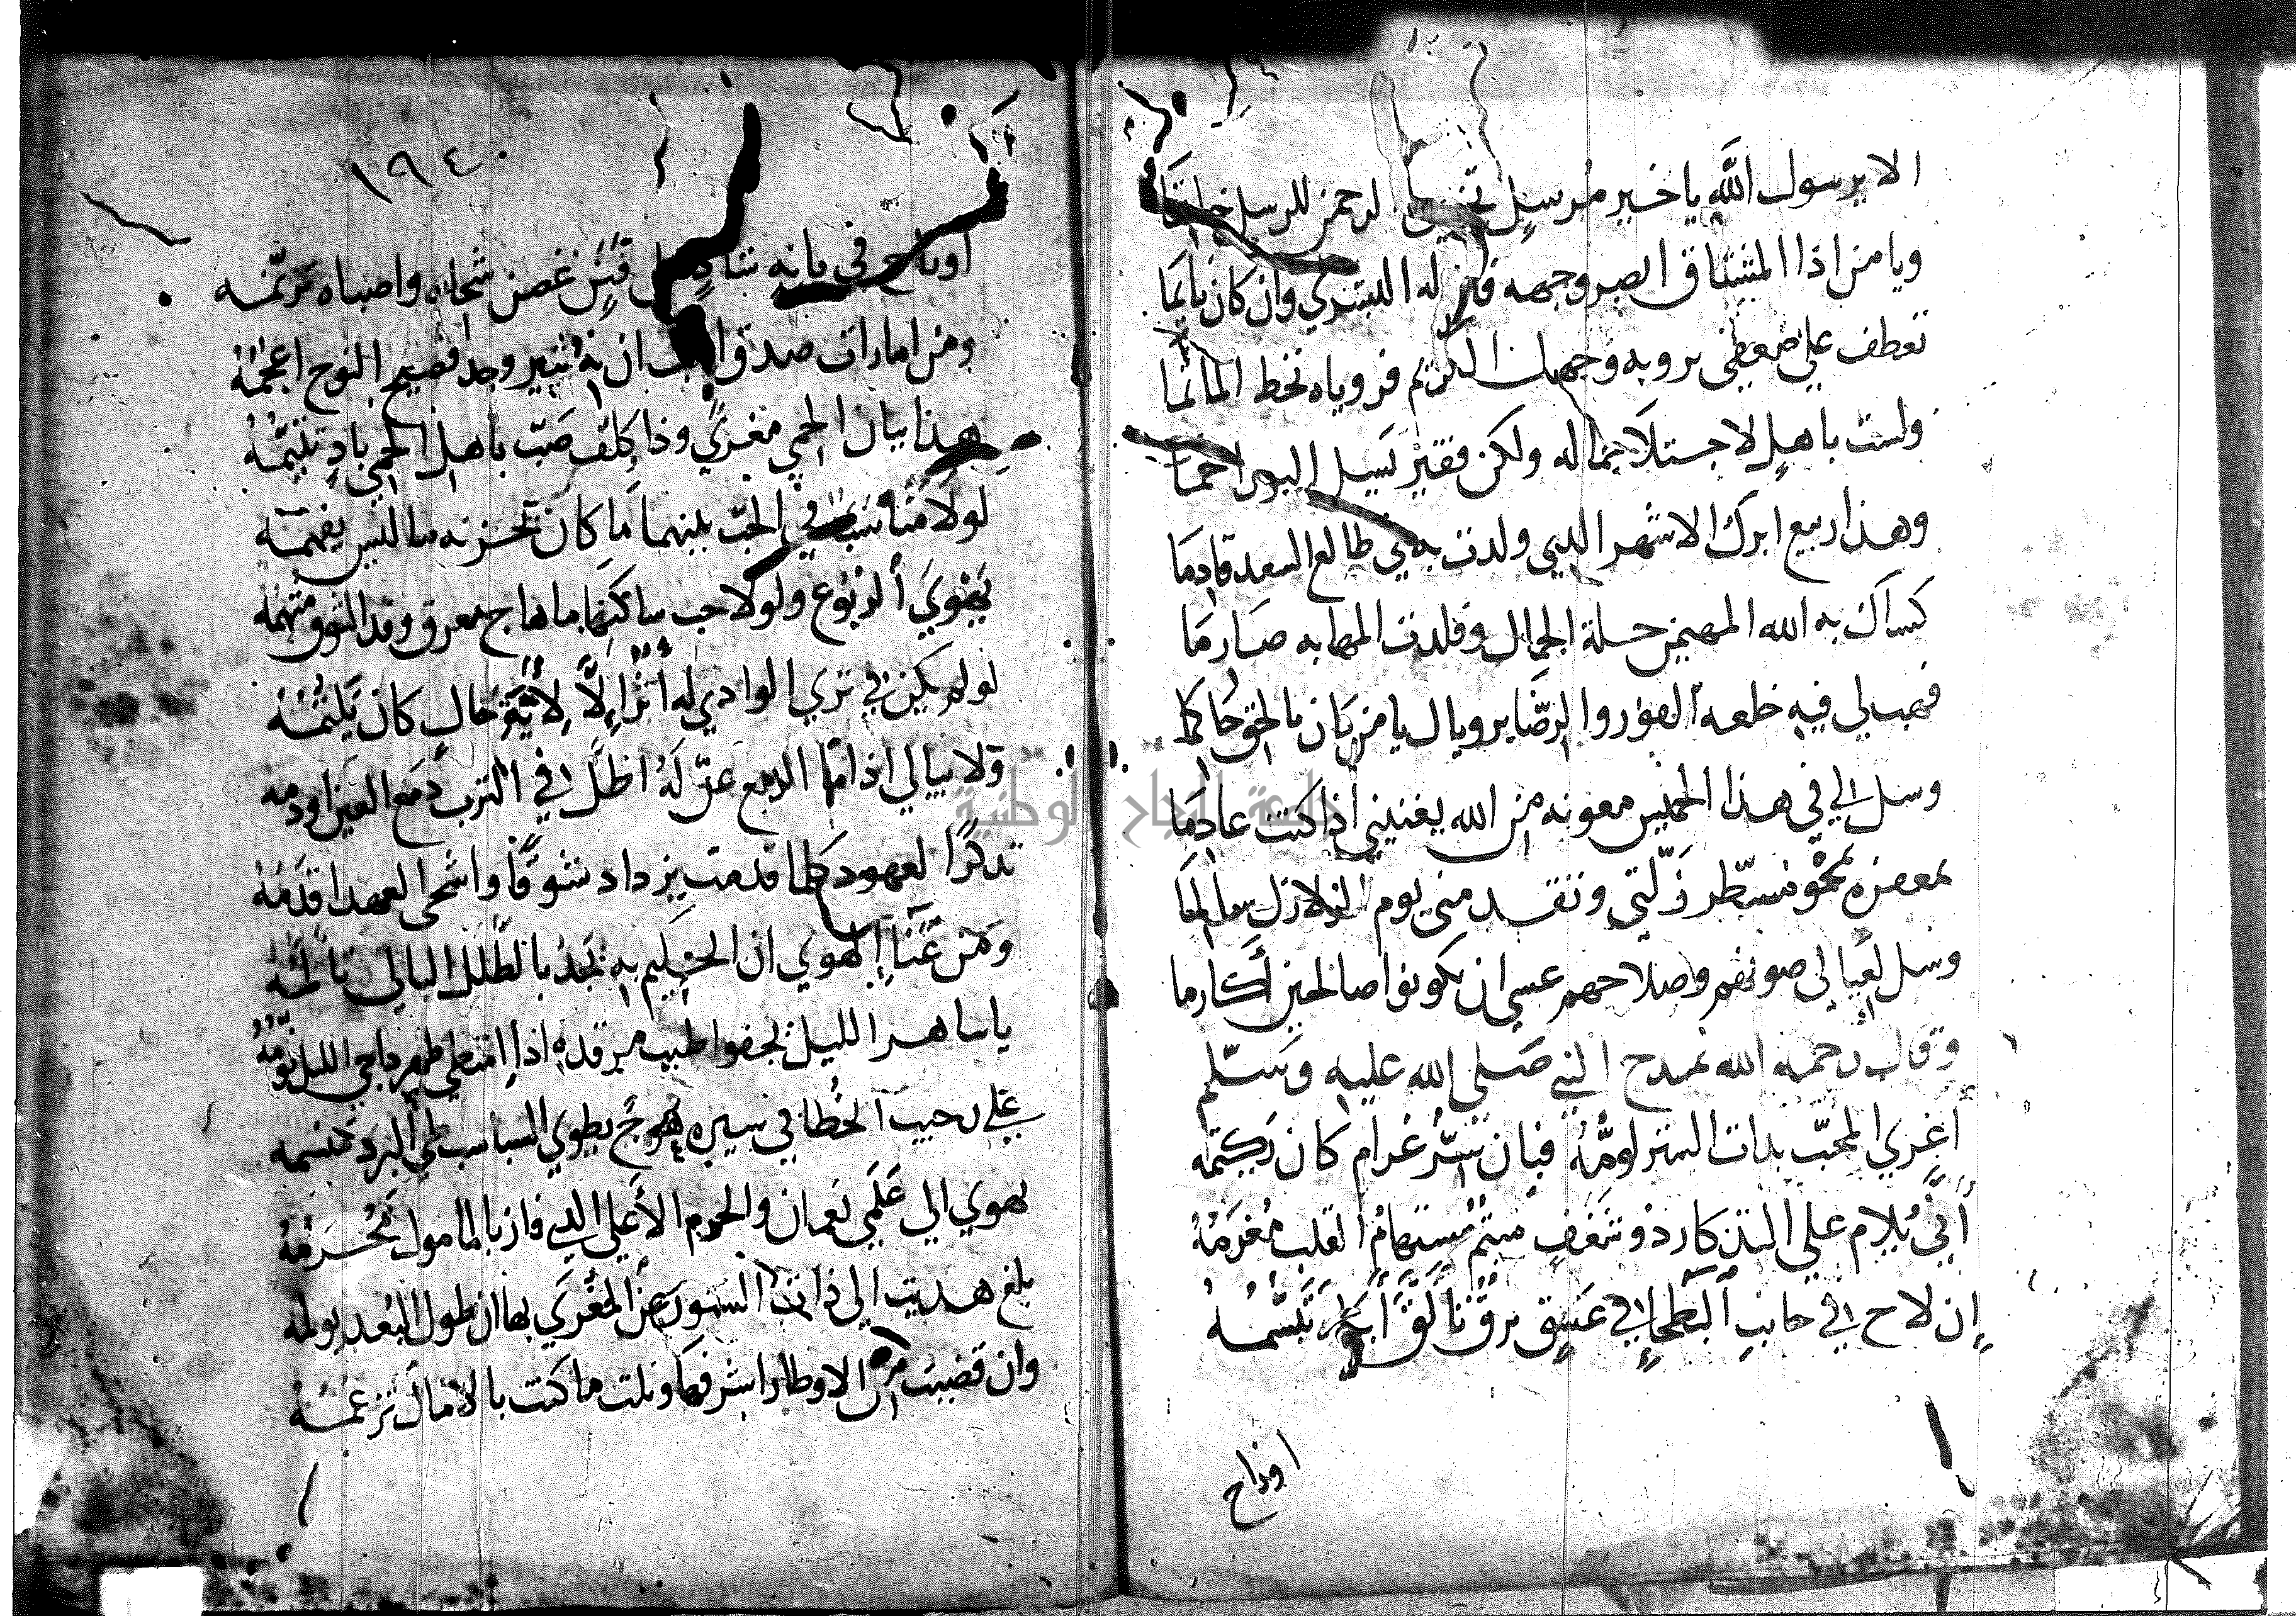 الا يرسول الله يا خير مرسل لرحمن للرسل خاتما
ويا من اذا المشتاق ابصر وجهه له البشري وان كان نايما
تعطف علي ضعفي بروية وجهك الكريم فروياه تحط الماتما
ولست باهل لاجتلا جماله ولكن فقير يسيل البحر راحما
وهذا ربيع ابرك الاشهر الذي ولدت به في طالع السعد قادما
كساك به الله المهيمن حلة الجمال وقلدت المهابه صارما
فهب لي فيه خلعة الفوز والرضا يا من بالحق حاكما
وسل لي في هذا الخميس معونه من الله يغنيني اذا كنت عادما
بمعصرة تمحو مسطر زلتي وتنقد مني يوم الزلازل سالما
وسل لعيالي صونهم وصلاحهم عسي ان يكونوا صالحين أكارما
وقال رحمه الله يمدح النبي صلي الله عليه وسلم
أغري المحب بذات الستر لومه فبان سر غرام كان يكتمه
أني يلام علي التذكار ذو شغف متيم مستهام القلب مغرمه
إن لاح في جانب البطحا في غسق برق تالق تبسمه
اوناح
١٩٤
اوناح في بانه شاد علي فنن غصن شجاه واصباه ترنمه
ومن امارات صدق الحب ان به يثير وجد فصيح النوح اعجمه
هذا ببان الحمي مغري وذا كلف صب باهل الحمي باد تتيمه
لولا مناسبة في الحب بينهما ما كان تحزنه ما ليس يفهمه
يهوي الربوع ولولا حب ساكنها ما هاج معرق وقد الشوق متهمه
لو لم يكن في ثري الوادي له أثر إلا لأية حال كان يلثمه
ولا يبالي اذا ما الدمع عز له اظل في الترب دمع العين او دمه
تدكرا لعهود كلما قدمت يزداد شوقا واشجي العهد اقدمه
ومن عنا الهوي ان الحكيم به نجد بالطلل البالي
يا ساهر الليل يجفوا طيب مرقده اذا امتطي ظهر داجي الليل نومه
علي رحيب الخطا في سيره هوج يطوي السباسب طي البرد منسمه
يهوي الي علمي نعمان والحرم الأعلي الذي فاز بالمامول محرمه
بلغ هديت الي ذات الستور عن المغري بها ان طول البعد يولمه
وان قضيت من الاوطار اشرفها ونلت ما كنت بالامال تزعمه
جامعة النجاح الوطنية